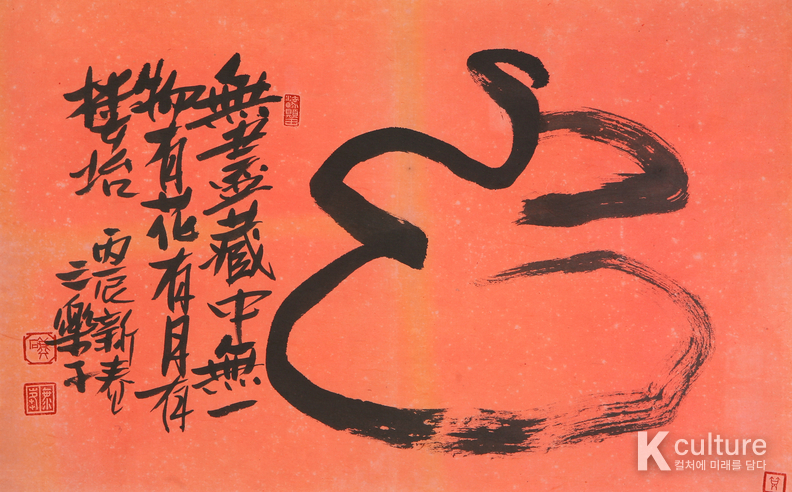 無盡藏中無一
物有花有月有
樓坮
丙辰新春
三樂子
K culture
컬처에 미래를 담다